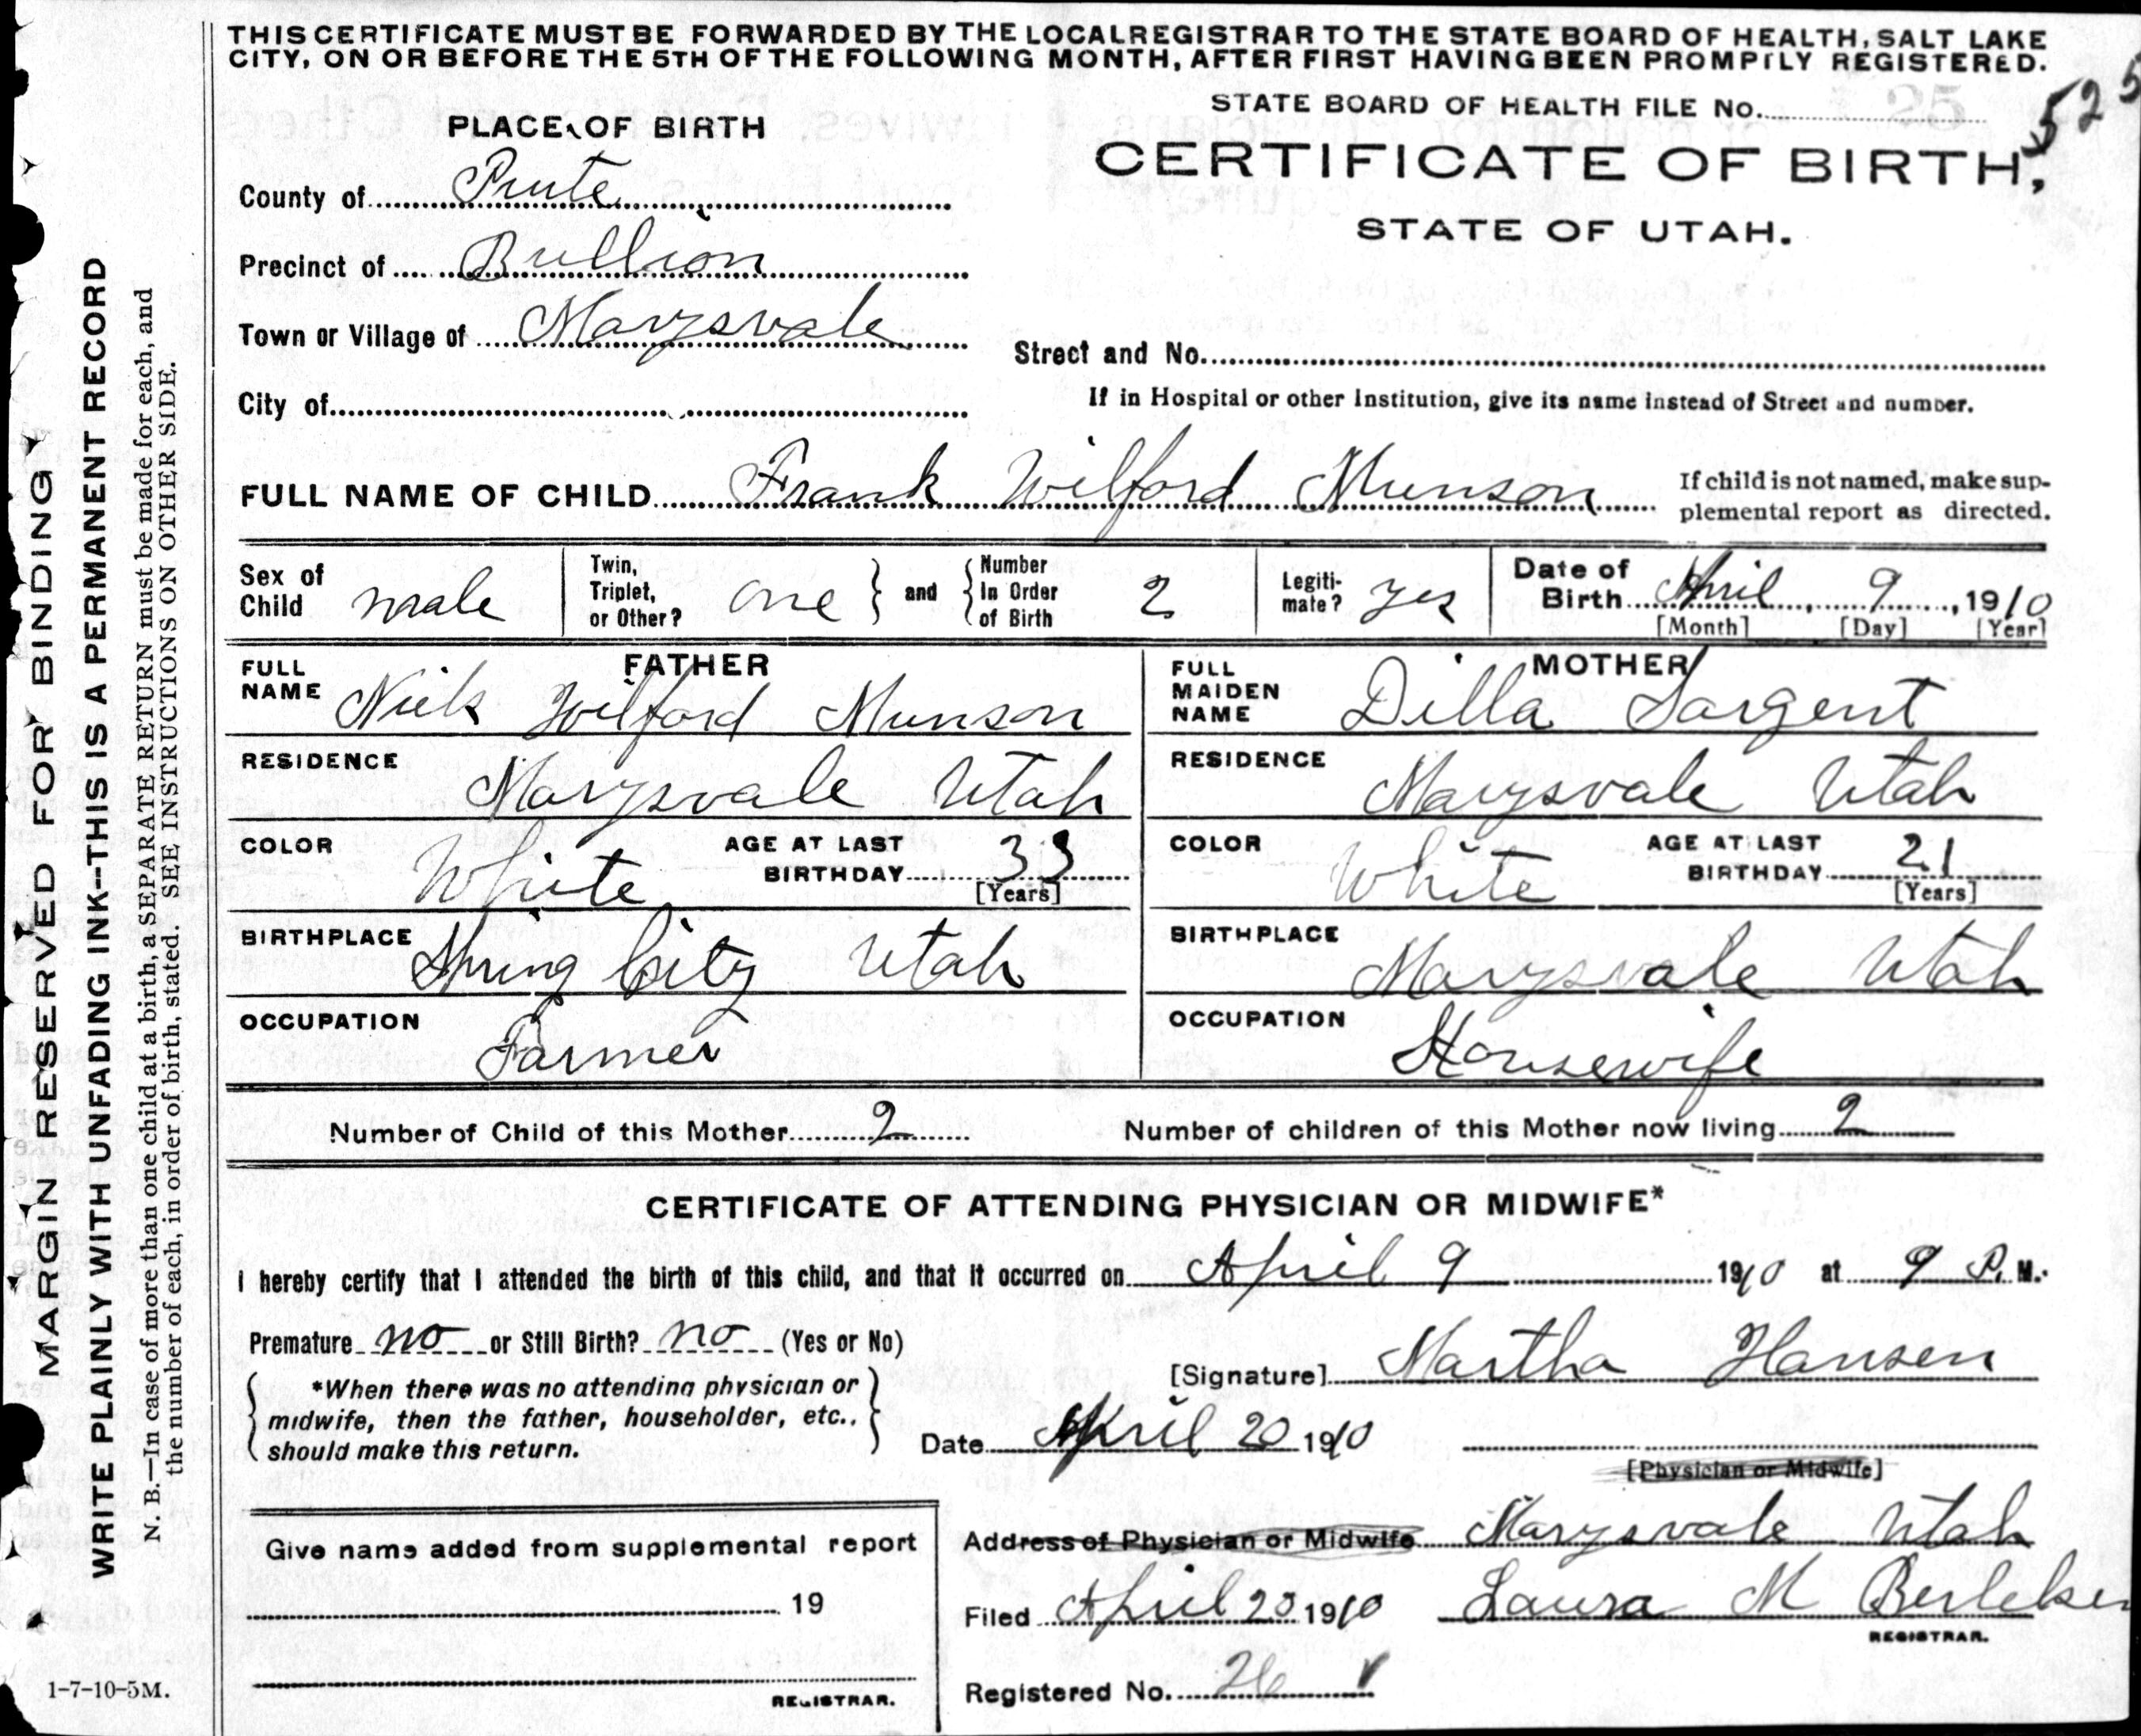 THIS CERTIFICATE MUST BE FORWARDED BY THE LOCAL REGISTRAR TO THE STATE BOARD OF HEALTH, SALT LAKE
CITY, ON OR BEFORE THE 5TH OF THE FOLLOWING MONTH, AFTER FIRST HAVING BEEN PROMPTLY REGISTERED.
STATE BOARD OF HEALTH FILE No. 525
PLACE OF BIRTH
CERTIFICATE OF BIRTH,
STATE OF UTAH.
County of Piute
Precinct of Bullion
Town or Village of Marysvale
Street and No.
City of
If in Hospital or other Institution, give its name instead of Street and number.
FULL NAME OF CHILD Frank Wilford Munson
If child is not named, make sup-
plemental report as directed.
Sex of Child male
Twin, Triplet, or Other? one and Number In Order of Birth 2
Legiti-mate? yes
Date of Birth April 9, 1910
[Month] [Day] [Year]
FATHER
FULL NAME Niels Wilford Munson
RESIDENCE Marysvale Utah
COLOR White AGE AT LAST BIRTHDAY 33
[Years]
BIRTHPLACE Spring City Utah
OCCUPATION Farmer
MOTHER
FULL MAIDEN NAME Dilla Sargent
RESIDENCE Marysvale Utah
COLOR White AGE AT LAST BIRTHDAY 21
[Years]
BIRTHPLACE Marysvale Utah
OCCUPATION Housewife
Number of Child of this Mother 2
Number of children of this Mother now living 2
CERTIFICATE OF ATTENDING PHYSICIAN OR MIDWIFE*
I hereby certify that I attended the birth of this child, and that it occurred on April 9 1910 at 9 P. M.
Premature no or Still Birth? no (Yes or No)
*When there was no attending physician or
midwife, then the father, householder, etc.,
should make this return.
[Signature] Martha Hansen
Date April 20 1910
[Physician or Midwife]
Give name added from supplemental report
19
REGISTRAR.
Address of Physician or Midwife Marysvale Utah
Filed April 23 1910 Laura M
REGISTRAR.
Registered No. 26
1-7-10-5M.
MARGIN RESERVED FOR BINDING
WRITE PLAINLY WITH UNFADING INK--THIS IS A PERMANENT RECORD
N. B.—In case of more than one child at a birth, a SEPARATE RETURN must be made for each, and
the number of each, in order of birth, stated. SEE INSTRUCTIONS ON OTHER SIDE.